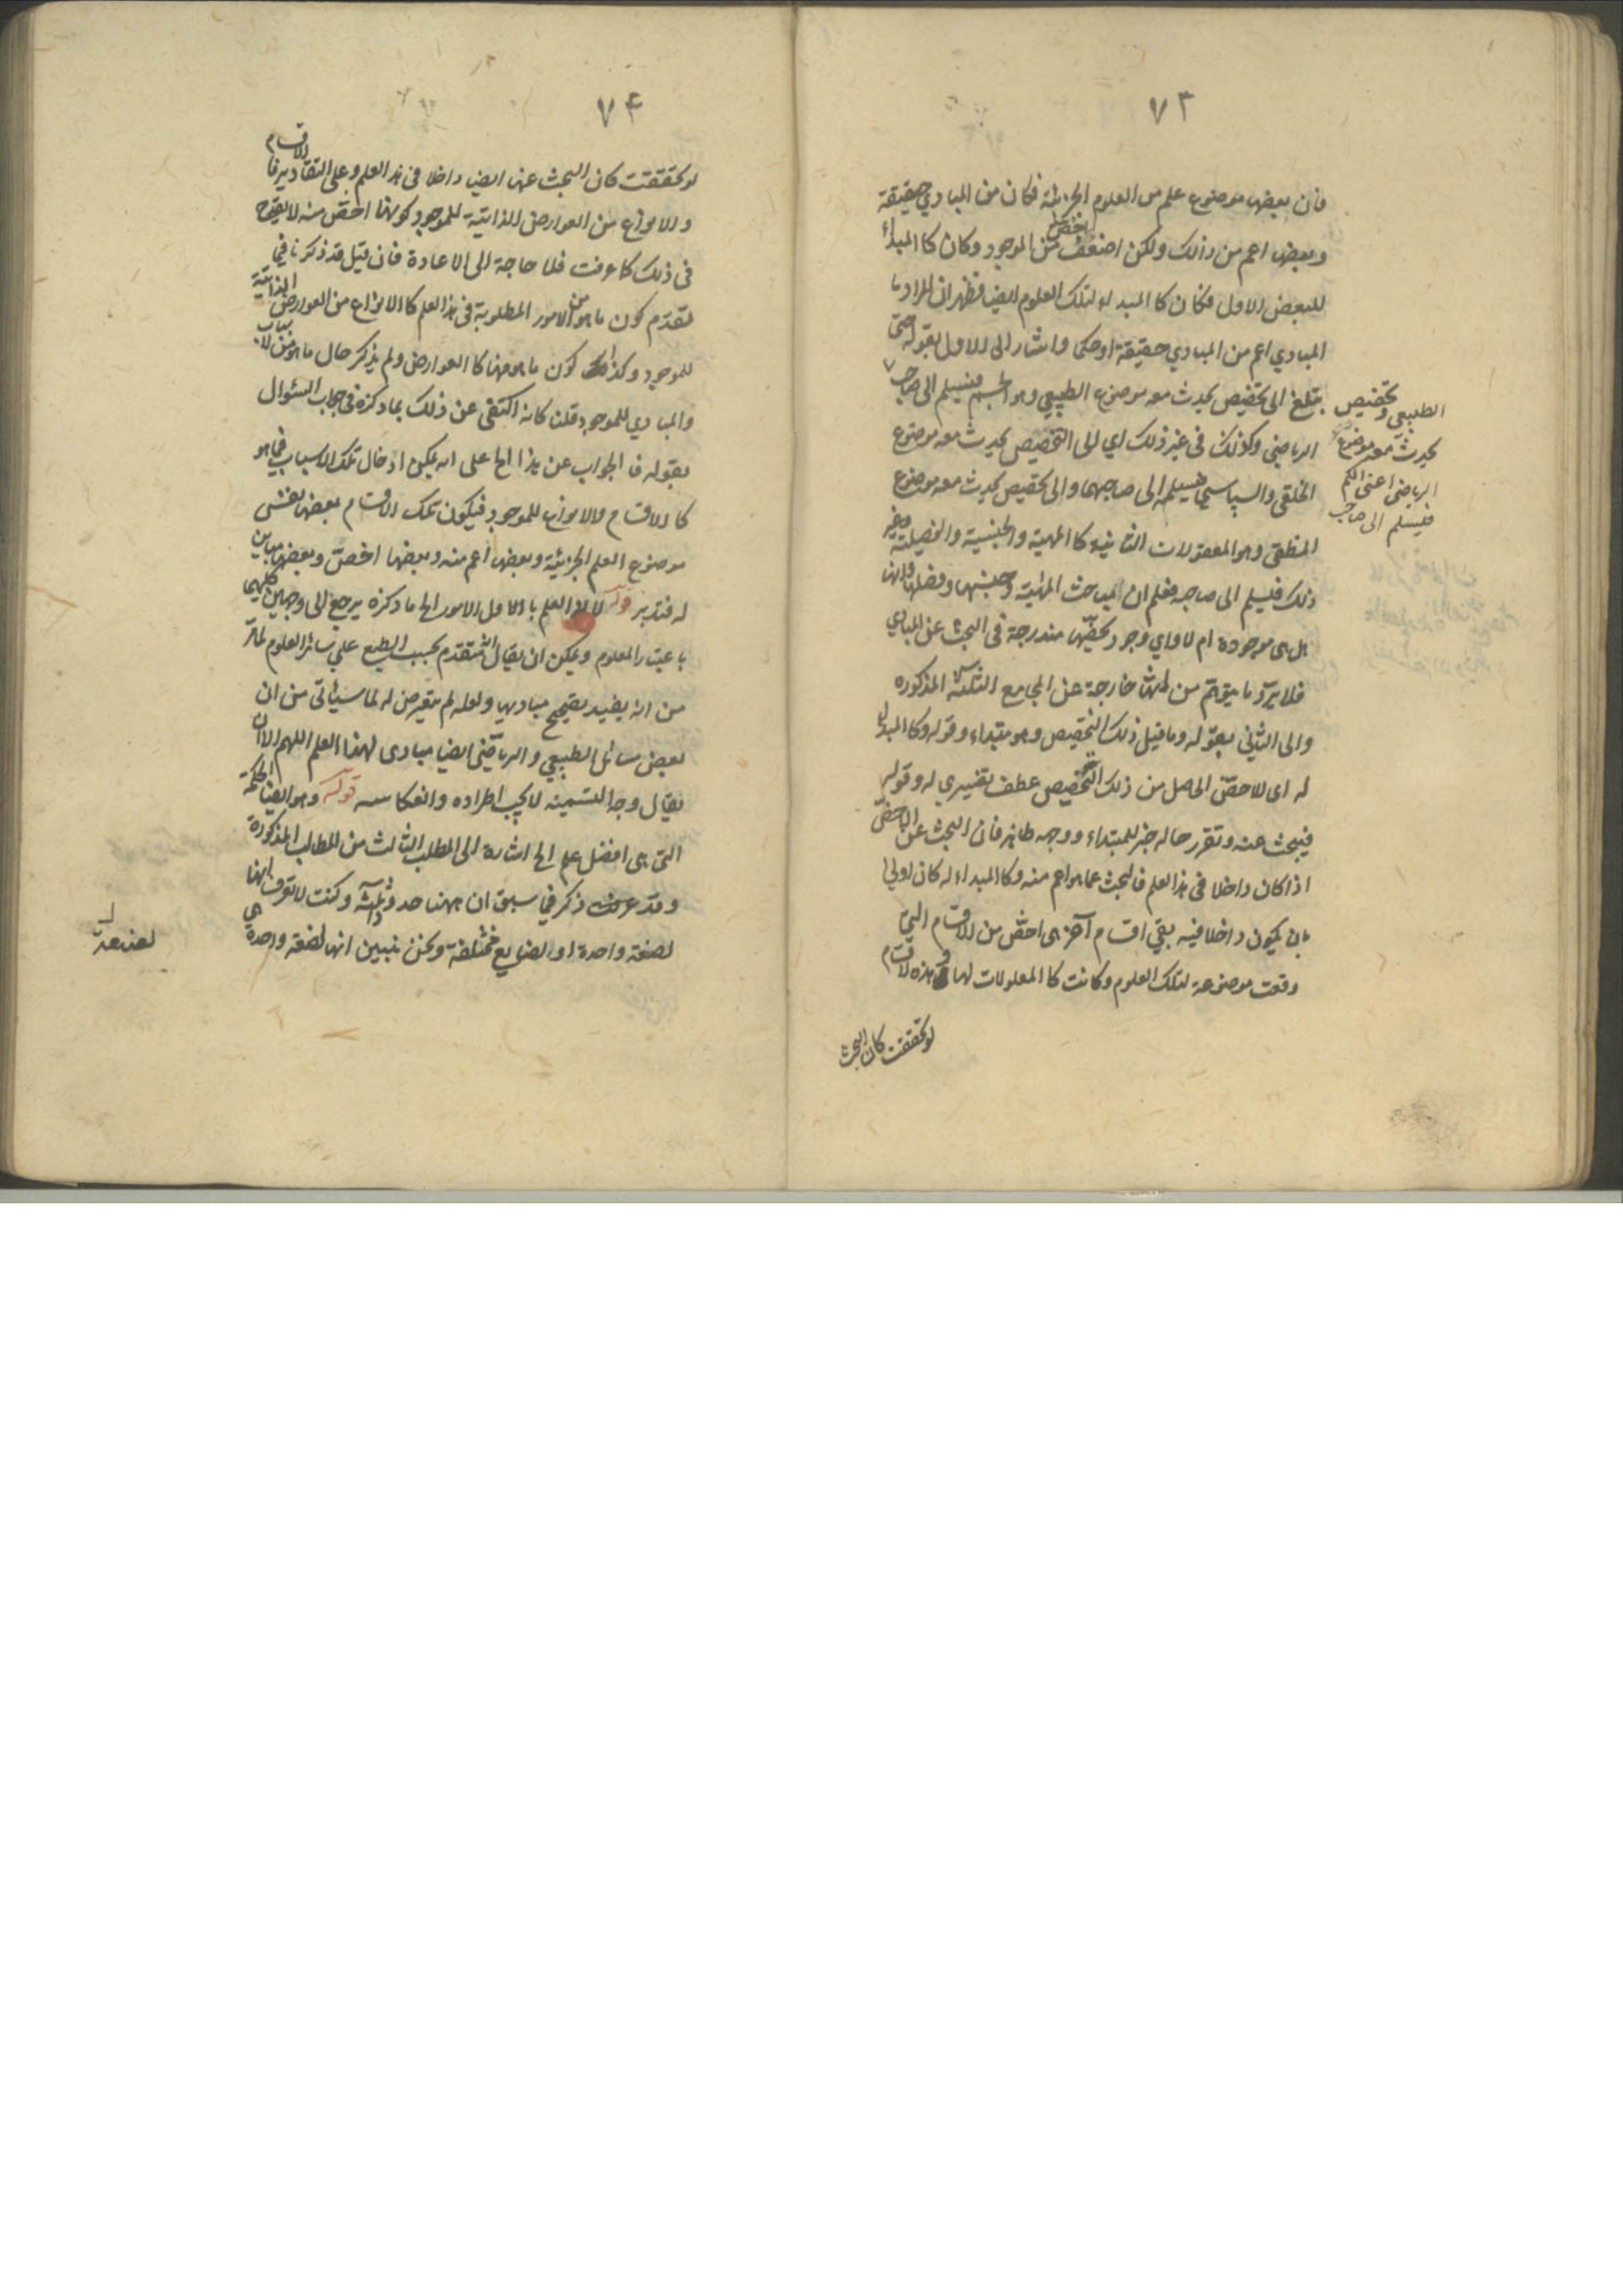 ٧٣
فان بعضها موضوع علم من العلوم الجزئية فكان من المبادي حقيقة
وبعضها اعم من ذلك ولكن اخص من الموجود وكان كالمبداء
للبعض الاول فكان كالمبداء لتلك العلوم ايضا فظهر ان المراد با
المبادي اعم من المبادي حقيقة او حكما واشار الى الاول بقوله حتى
يبلغ الى تخصيص يحدث معه موضوع الطبيعي وهو الجسم فيسلم الى صاحب
الطبيعي وتخصيص
يحدث معه موضوع
الرياضي اعنى الكم
فيسلم الى صاحب
الرياضي وكذلك في غير ذلك اي الى التخصيص يحدث معه موضوع
الخلقي والسياسي فيسلمه الى صاحبهما والى تخصيص يحدث معه موضوع
المنطقي وهو المعقولات الثانية كالمهية والجنسية والفصلية وغير
ذلك فيسلم الى صاحبه فعلم ان المباحث المهية وجنسها وفصلها وانها
هل هى موجودة ام لا واي وجود يخصها مندرجة في البحث عن المبادي
فلا يرد ما يتوهم من انها خارجة عن المجامع الثلثة المذكوره
والى الثاني بقوله وما قبل ذلك التخصيص وهو مبتداء وقوله وكالمبداء
له اى للاخص الحاصل من ذلك التخصيص عطف تفسيري له وقوله
فيبحث عنه وتقرر حاله خبر للمبتداء ووجهه ظاهر فان البحث عن الاخص
اذا كان داخلا في هذا العلم فالبحث عما هو اعم منه وكالمبداء له كان اولى
بان يكون داخلا فيه بقي اقسام آخر هى اخص من الاقسام التي
وقعت موضوعة لتلك العلوم وكانت كالمعلولات لها وهذه الاقسام
لو تحققت كان البحث
٧٤
لو تحققت كان البحث عنها ايضا داخلا في هذا العلم وعلى التقادير فالاقسام
والانواع من العوارض الذاتية للموجود كونها اخص منه لا يقدح
في ذلك كما عرفت فلا حاجة الى الاعادة فان قيل قد ذكرنا فيما
تقدم كون ما هو من الامور المطلوبة في هذا العلم كالانواع من العوارض الذاتية
للموجود وكذلك كون ما هو منها كالعوارض ولم يذكر حال ما هو من الاسباب
والمبادي للموجود قلنا كانه اكتفى عن ذلك بما ذكره في جواب السئوال
بقوله فالجواب عن هذا الخ على انه يمكن ادخال تلك الاسباب فيما هو
كالاقسام والانواع للموجود فيكون تلك الاقسام بعضها نفس
موضوع العلم الجزئية وبعضها اعم منه وبعضها اخص وبعضها مباين
له فتدبر قوله لان العلم بالاول الامور الخ ما ذكره يرجع الى وجهين كليهما
باعتبار المعلوم ويمكن ان يقال انه متقدم بحسب الطبع على سائر العلوم لما مر
من انه يفيد تصحيح مباديها ولعله لم يتعرض له لما سيأتى من ان
بعض مسائل الطبيعي والرياضي ايضا مبادى لهذا العلم اللهم الا ان
يقال وجه التسمية لا يجب اطراده وانعكاسه قوله وهو ايضا الحكمة
التى هى افضل علم الخ اشارة الى المطلب الثالث من المطالب المذكورة
وقد عرفت ذكر في سبق ان ههنا حدودا ثلثة وكنت لا تعرف انها
لصنعة واحدة او لصنايع مختلفة ونحن نبين انها لصنعة واحدة